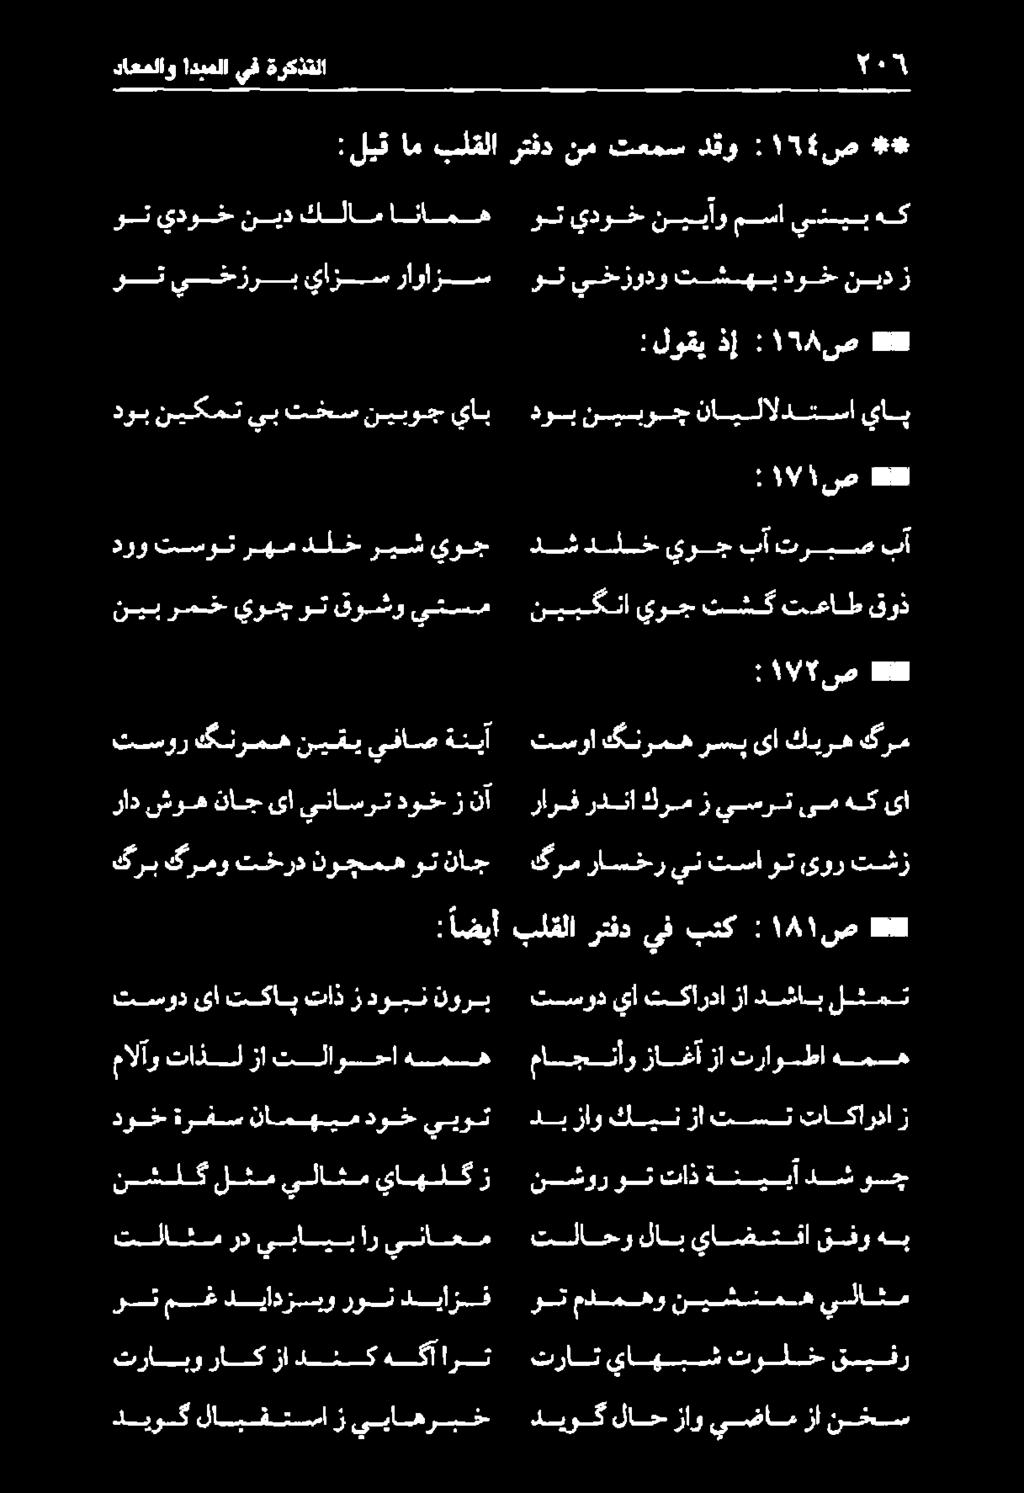 ٢٠٦ التذكرة في المبدأ والمعاد
** ص١٦٤ : وقد سمعت من دفتر القلب ما قيل :
كه بيني اسم وآيين خودي تو همانا مالك دين خودي تو
ز دين خود بهشت ودوزخي تو سزاوار سزاي برزخي تو
■■ ص١٦٨ : إذ يقول :
پاي استدلاليان چوبين بود پاي چوبين سخت بي تمكين بود
■■ ص١٧١ :
آب صبرت آب جوي خلد شد جوي شير خلد مهر توست وود
ذوق طاعت گشت جوي انگبين مستي وشوق تو جوي خمر بين
■■ ص١٧٢ :
مرگ هريك اى پسر همرنگ اوست آينة صافي يقين همرنگ روست
اى كه مى ترسي ز مرك اندر فرار آن ز خود ترساني اى جان هوش دار
زشت روى تو است ني رخسار مرگ جان تو همچون درخت ومرگ برگ
■■ ص١٨١ : كتب في دفتر القلب أيضاً :
تمثل باشد از ادراكت اي دوست برون نبود ز ذات پاكت اى دوست
همه اطوارت از آغاز وأنجام همه احوالت از لذات وآلام
ز ادراكات تست از نيك واز بد توبي خود ميهمان سفرة خود
چو شد آيينة ذات تو روشن ز گلهاي مثالي مثل گلشن
به وفق اقتضاى بال وحالت معاني را بيابي در مثالت
مثالي همنشين وهمدم تو فزايد نور ويزدايد غم تو
رفيق خلوت شبهاي تارت ترا آگه كند از كار وبارت
سخن از ماضي واز حال گويد خبرهايي ز استقبال گويد